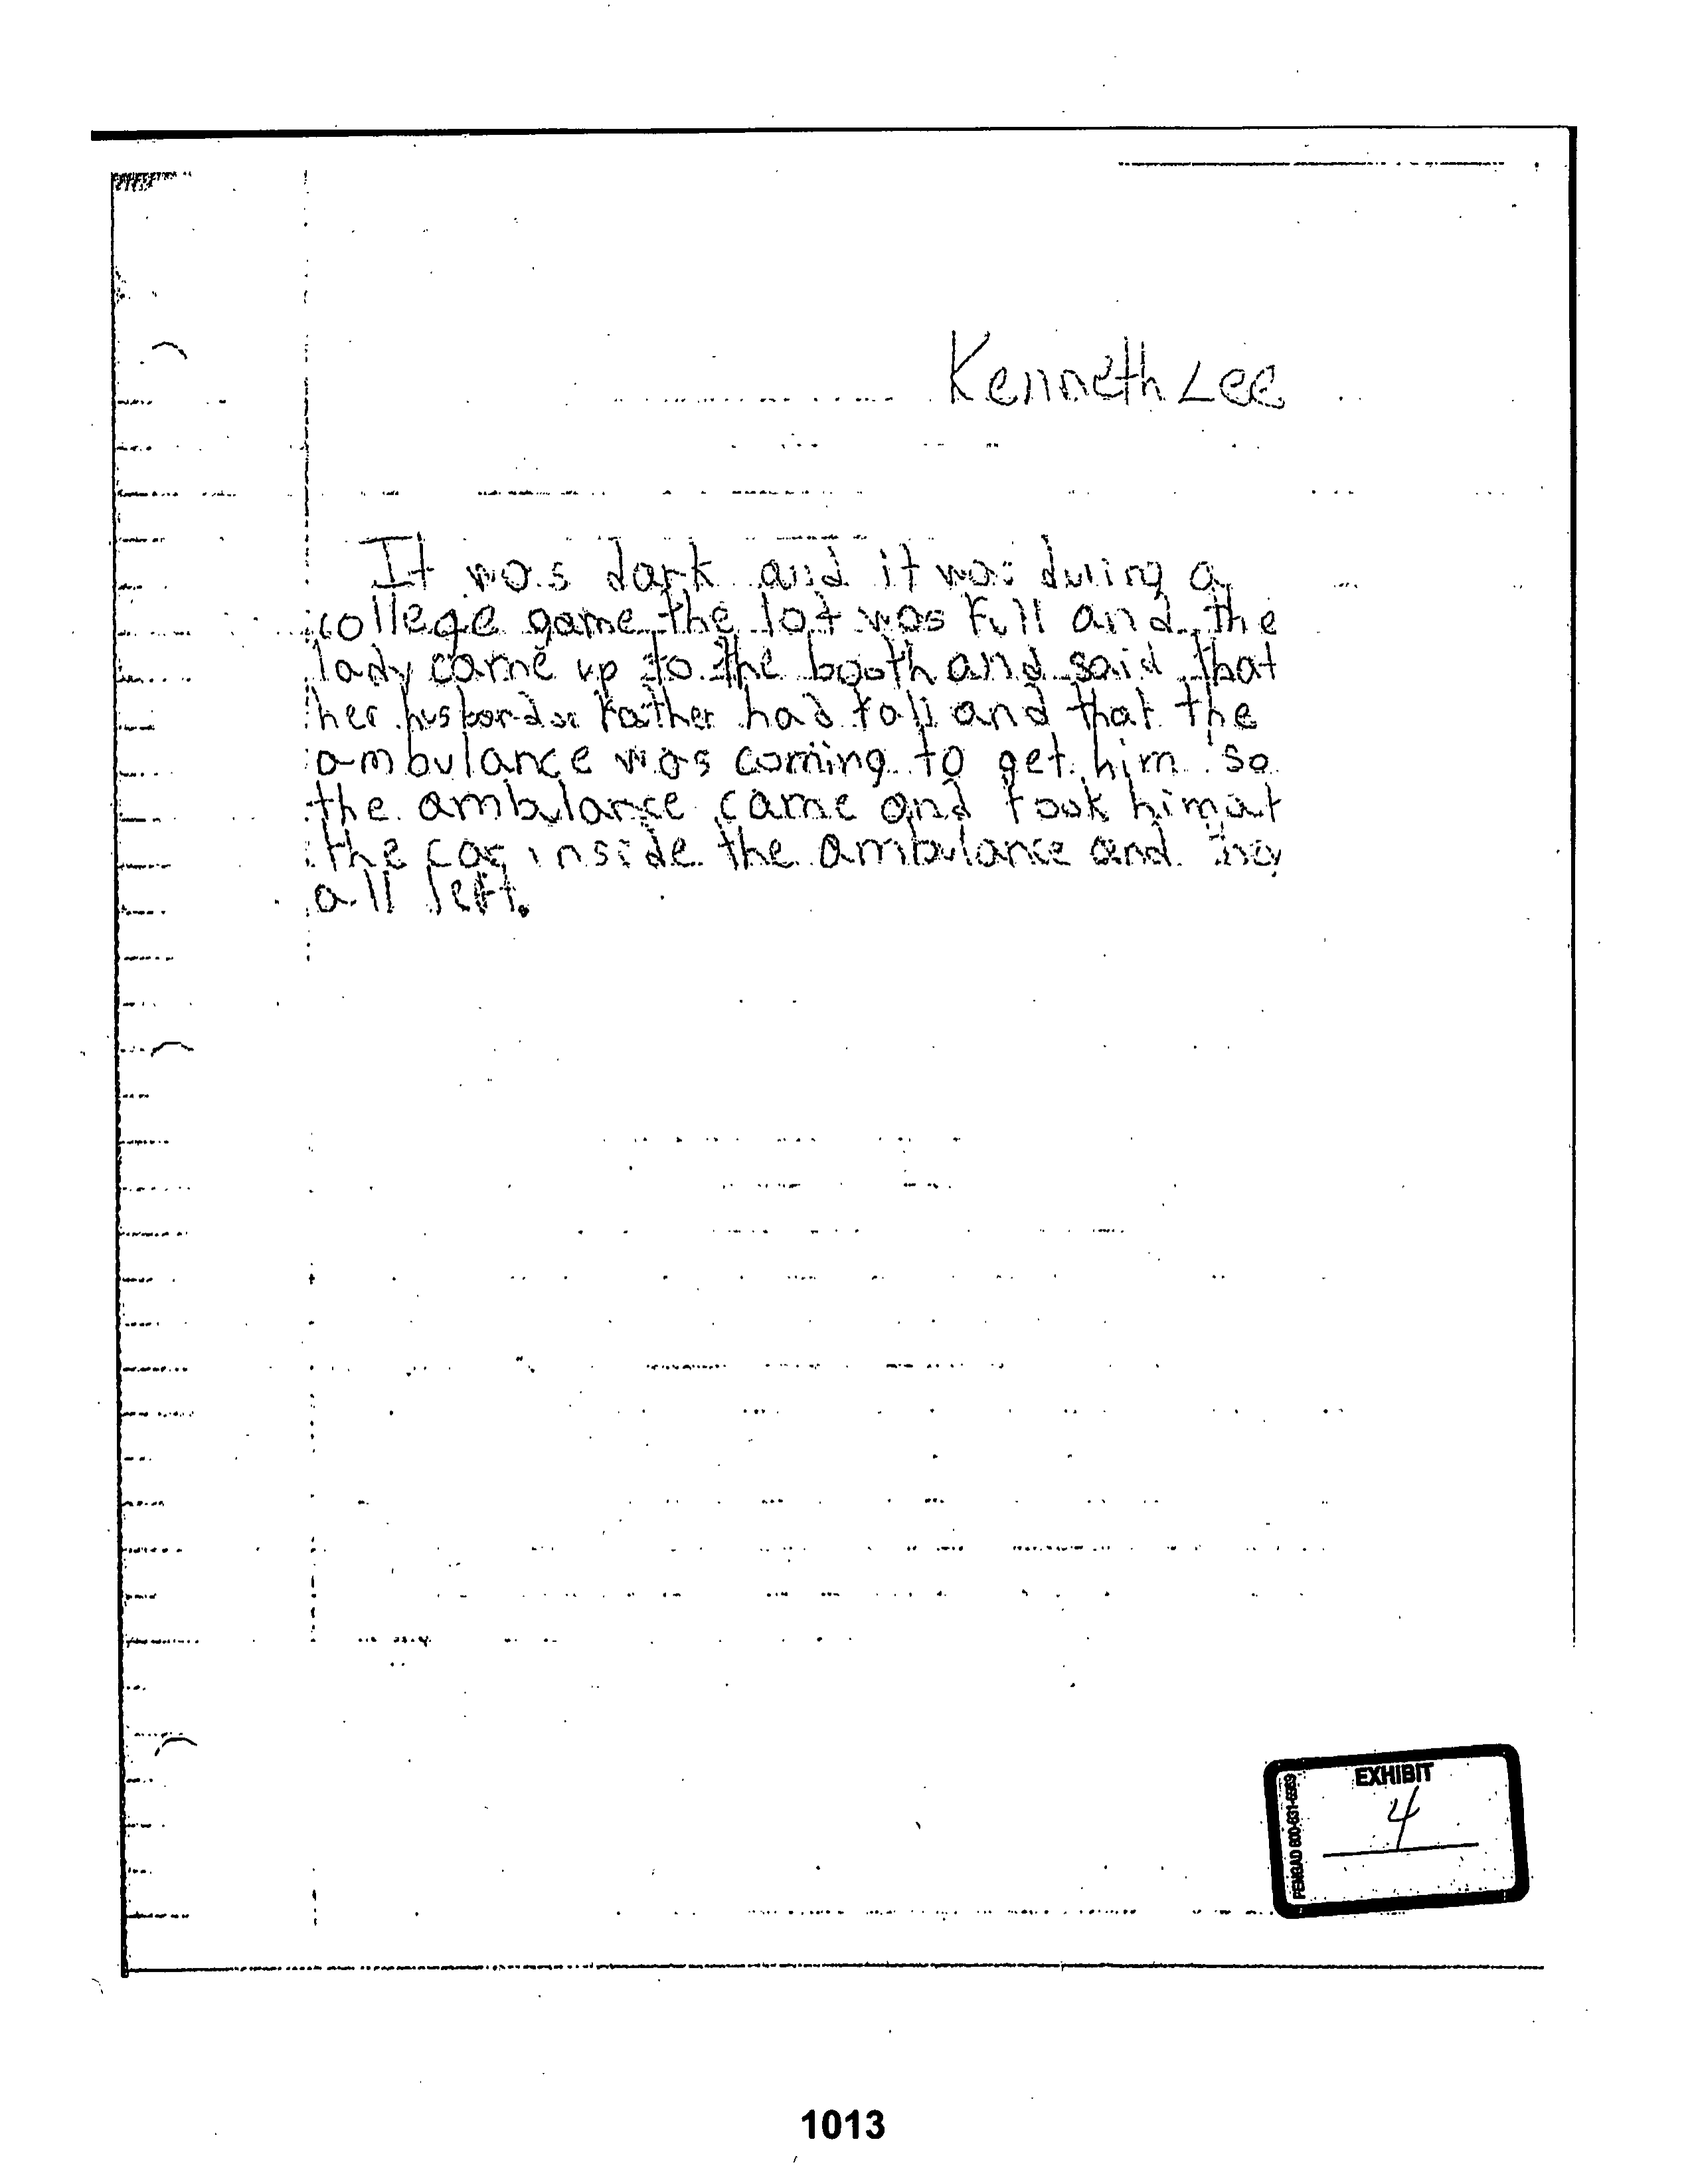 Kenneth Lee
It was dark and it was during a
college game the lot was full and the
lady came up to the booth and said that
her husband or father had fall and that the
ambulance was coming to get him so
the ambulance came and took him at
the car inside the ambulance and
all left.
EXHIBIT
4
PENGAD 800-631-6989
1013